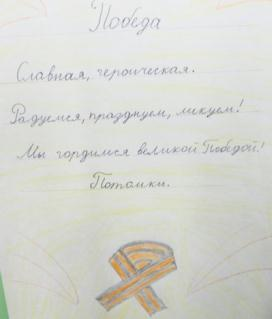 Победа
Славная, героическая.
Радуемся, празднуем, ликуем!
Мы гордимся великой Победой!
Потомки.